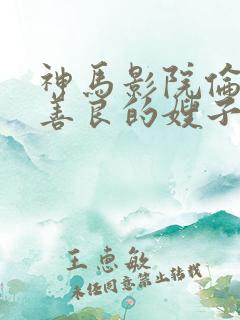 神馬影院倫
善良的嫂子
王惠敏
未经同意禁止转载